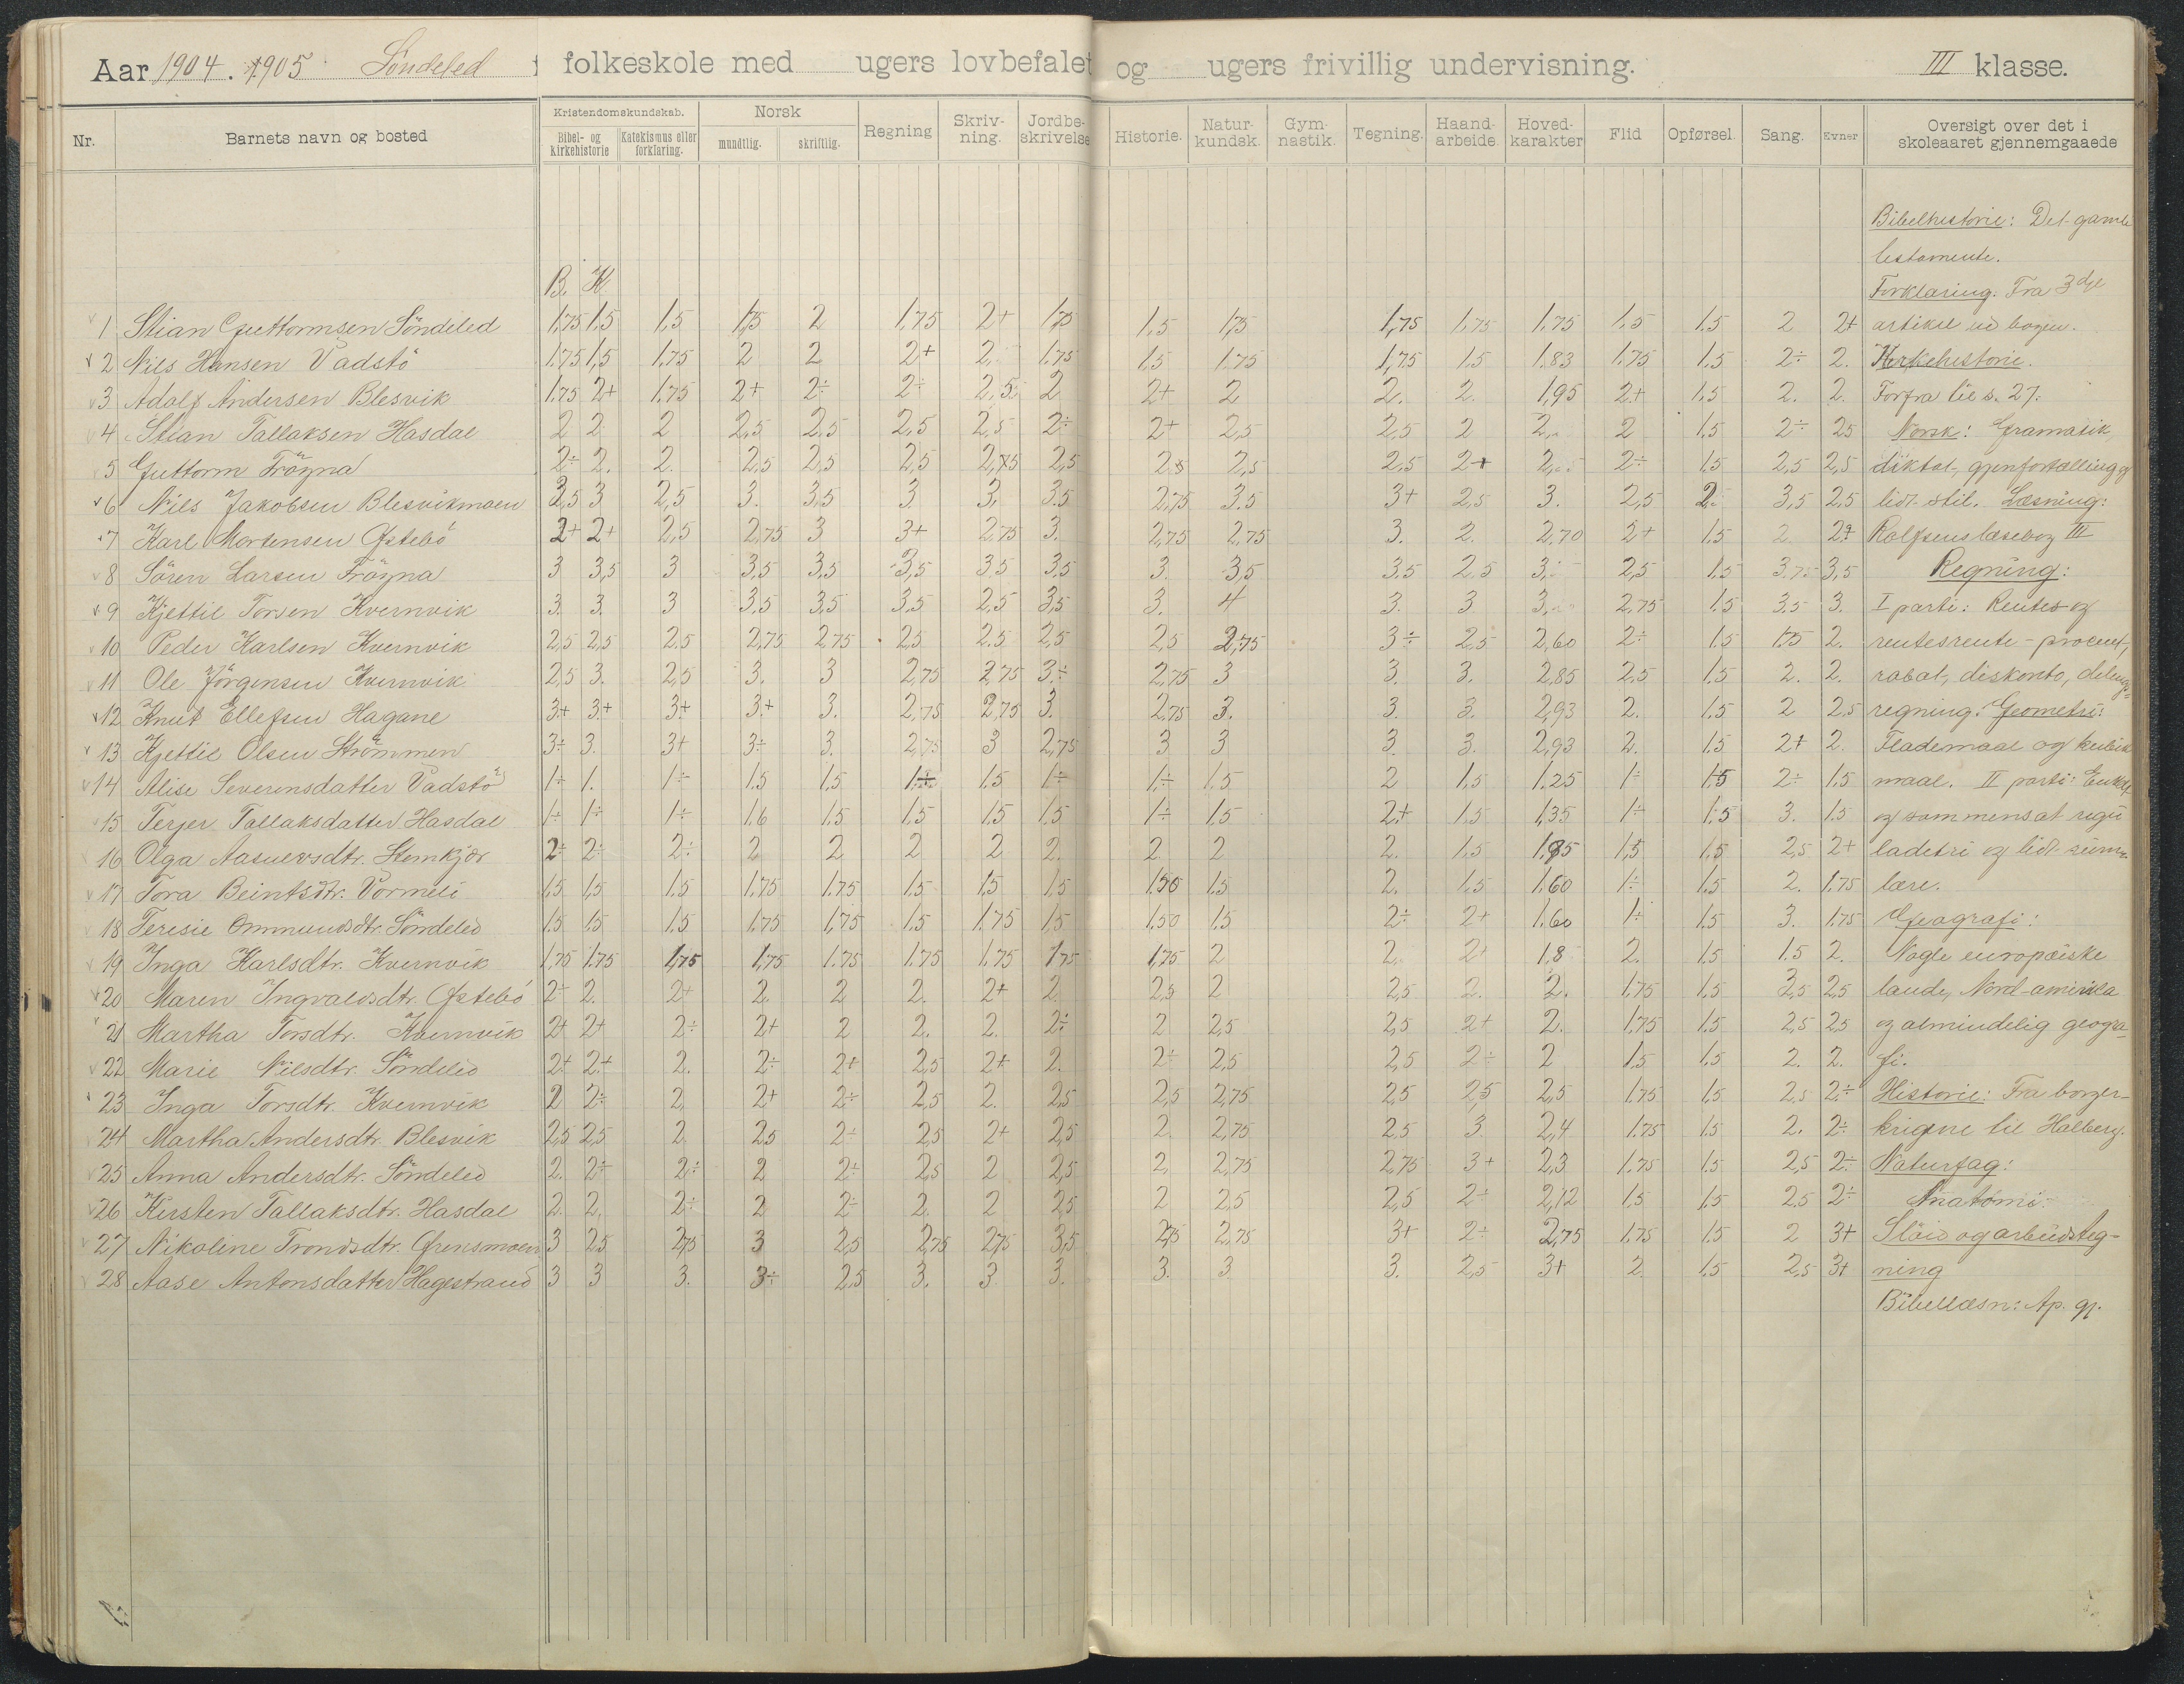 Aar 1904. 1905 Söndeled folkeskole med ugers lovbefalet og ugers frivillig undervisning. III klasse.
Nr. Barnets navn og bosted Kristendomskundskab. Bibel- og kirkehistorie Katekismus eller forklaring. Norsk mundtlig. skriftlig. Regning Skriv-ning. Jordbe-skrivelse Historie. Natur-kundsk. Gym-nastik. Tegning. Haand-arbeide. Hoved-karakter Flid Opførsel. Sang. Evner Oversigt over det i skoleaaret gjennemgaaede
Bibelhistorie: Det gamle
testamente.
B. K. Forklaring. Fra 3dje
1 Stian Guttormsen Söndeled 1,75 1,5 1,5 1,75 2 1,75 2+ 1,75 1,5 1,75 1,75 1,75 1,75 1,5 1,5 2 2+ artikel ud bogen.
2 Nils Hansen Vadstö 1,75 1,5 1,75 2 2 2+ 2 1,75 1,5 1,75 1,75 1,5 1,83 1,75 1,5 2÷ 2. Kirkehistorie.
3 Adolf Andersen Blesvik 1,75 2+ 1,75 2+ 2÷ 2÷ 2,5 2 2+ 2 2. 2. 1,95 2+ 1,5 2. 2. Forfra til s. 27.
4 Stian Tallaksen Hasdal 2 2 2 2,5 2,5 2,5 2,5 2÷ 2+ 2,5 2,5 2 2 2 1,5 2÷ 2,5 Norsk: Gramatik,
5 Guttorm Frögna 2÷ 2. 2. 2,5 2,5 2,5 2,75 2,5 2,5 2,5 2,5 2+ 2÷ 1,5 2,5 2,5 diktat, gjenfortælling og
6 Nils Jakobsen Blesvikmoen 3,5 3 2,5 3. 3,5 3 3, 3,5 2,75 3,5 3+ 2,5 3. 2,5 2 3,5 2,5 lidt stil. Læsning:
7 Karl Mortensen Østebö 2+ 2+ 2,5 2,75 3 3+ 2,75 3. 2,75 2,75 3. 2. 2,70 2+ 1,5 2 2+ Rolfsens læsebog III
8 Sören Larsen Frögna 3 3,5 3 3,5 3,5 3,5 3,5 3,5 3. 3,5 3,5 2,5 3, 2,5 1,5 3,75 3,5 Regning:
9 Kjettil Torsen Kvernvik 3. 3. 3 3,5 3,5 3,5 2,5 3,5 3. 4 3. 3 3, 2,75 1,5 3,5 3. I parti: Rentes og
10 Peder Karlsen Kvernvik 2,5 2,5 2,5 2,75 2,75 2,5 2,5 2,5 2,5 2,75 3÷ 2,5 2,60 2÷ 1,5 1,75 2. rentesrente - procent,
11 Ole Jörgensen Kvernvik 2,5 3. 2,5 3. 3 2,75 2,75 3÷ 2,75 3 3. 3. 2,85 2,5 1,5 2. 2. rabat, diskonto, delings-
12 Knut Ellefsen Hagane 3+ 3+ 3+ 3+ 3. 2,75 2,75 3. 2,75 3. 3. 3. 2,93 2. 1,5 2 2,5 regning. Geometri:
13 Kjettil Olsen Strömmen 3÷ 3. 3+ 3÷ 3. 2,75 3 2,75 3 3 3. 3. 2,93 2. 1,5 2+ 2. Flademaal og kubik
14 Alise Severensdatter Vadstö 1÷ 1. 1÷ 1,5 1,5 1÷ 1,5 1÷ 1÷ 1,5 2 1,5 1,25 1÷ 1,5 2÷ 1,5 maal. II parti: Enkelt
15 Terjer Tallaksdatter Hasdal 1÷ 1÷ 1÷ 1,6 1,5 1,5 1,5 1,5 1÷ 1,5 2+ 1,5 1,35 1÷ 1,5 3. 1,5 og sammensat regu
16 Olga Aasuevsdtr. Stemkjær 2÷ 2÷ 2÷ 2 2 2 2 2. 2 2 2. 1,5 1,85 1,5 1,5 2,5 2+ ladetri og lidt
17 Tora Beintsdtr. Vormeli 1,5 1,5 1,5 1,75 1,75 1,5 1,5 1,5 1,50 1,5 2. 1,5 1,60 1÷ 1,5 2. 1,75 lære.
18 Teresie Ommundsdtr. Söndeled 1,5 1,5 1,5 1,75 1,75 1,5 1,75 1,5 1,50 1,5 2÷ 2+ 1,60 1÷ 1,5 3. 1,75 Geografi:
19 Inga Karlsdtr. Kvernvik 1,75 1,75 1,75 1,75 1,75 1,75 1,75 1,75 1,75 2 2. 2+ 1,8 2. 1,5 1,5 2. Nogle europæiske
20 Maren Ingvaldsdtr. Østebö 2÷ 2. 2+ 2. 2 2. 2+ 2. 2,5 2 2,5 2. 2. 1,75 1,5 3,5 2,5 lande, Nord-amerika
21 Martha Torsdtr. Kvernvik 2+ 2+ 2÷ 2+ 2 2. 2. 2÷ 2 2,5 2,5 2+ 2. 1,75 1,5 2,5 2,5 og almindelig geogra-
22 Marie Nilsdtr. Söndeled 2+ 2+ 2. 2÷ 2+ 2,5 2+ 2. 2÷ 2,5 2,5 2÷ 2 1,5 1,5 2. 2. fi.
23 Inga Torsdtr. Kvernvik 2 2÷ 2, 2+ 2÷ 2,5 2. 2,5 2,5 2,75 2,5 2,5 2,5 1,75 1,5 2,5 2÷ Historie: Fra borger-
24 Martha Andersdtr. Blesvik 2,5 2,5 2. 2,5 2÷ 2,5 2+ 2,5 2. 2,75 2,5 3 2,4 1,75 1,5 2. 2÷ krigene til Holberg.
25 Anna Andersdtr. Söndeled 2. 2÷ 2÷ 2 2÷ 2,5 2 2,5 2, 2,75 2,75 3+ 2,3 1,75 1,5 2,5 2÷ Naturfag:
26 Kirsten Tallaksdtr. Hasdal 2. 2. 2÷ 2 2÷ 2. 2 2,5 2 2,5 2,5 2÷ 2,12 1,5 1,5 2,5 2÷ Anatomi.
27 Nikoline Trondsdtr. Grensmoen 3 2,5 2,75 3 2,5 2,75 2,75 3,5 2,75 2,75 3+ 2÷ 2,75 1,75 1,5 2 3+ Slöid og arbeidsteg-
28 Aase Antonsdatter Hagestrand 3 3 3. 3÷ 2,5 3. 3. 3. 3. 3 3. 2,5 3+ 2 1,5 2,5 3+ ning
Bibellæsn: Ap. gj.